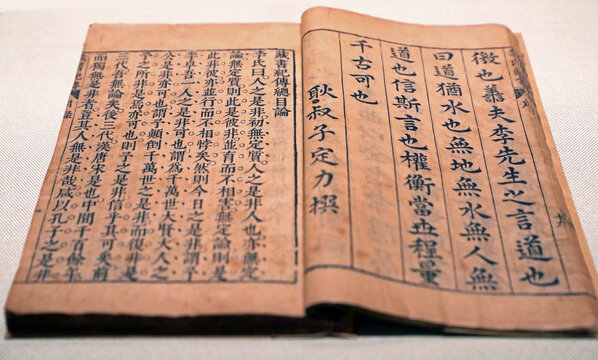 徵也蓋夫李先生之言道也
曰道猶水也無地無水無人無
道也信斯言也權衡當世程量
千古可也
耿叔子定力撰
藏書紀傳總目論
李氏曰人之是非初無定質人之是非人也亦無定
論無定質則此是彼非並育而不相害無定論則是
此非彼亦並行而不相悖矣然則今日之是非謂予
李卓吾一人之是非可也謂為千萬世大賢大人之
公是非亦可也謂予顛倒千萬世之是非而復非是
予之所非是焉亦可也則予之是非信乎其可矣前
三代吾無論矣後三代漢唐宋是也中間千百餘年
而獨無是非者豈其人無是非哉咸以孔子之是非
目錄